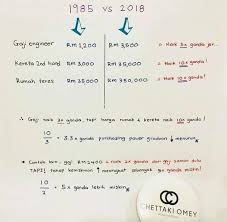 1985 vs 2018
Gaji engineer RM 1,200 RM 3,600 = Naik 3x ganda jer..
Kereta 2nd hand RM 3,000 RM 35,000 = Naik 10x ganda!
Rumah teres RM 35,000 RM 350,000 = Naik 10x ganda!
∴ Gaji naik 3x ganda, tapi harga rumah & kereta naik 10x ganda!
10/3 = 3.3x ganda purchasing power graduan menurun
Contoh lain, gaji RM2400 = naik 2x ganda dari gaji zaman dulu
TAPI! tahap kemiskinan meningkat sebanyak 5x ganda
10/2 = 5x ganda lebih miskin
CC
CHETTAKI OMEY